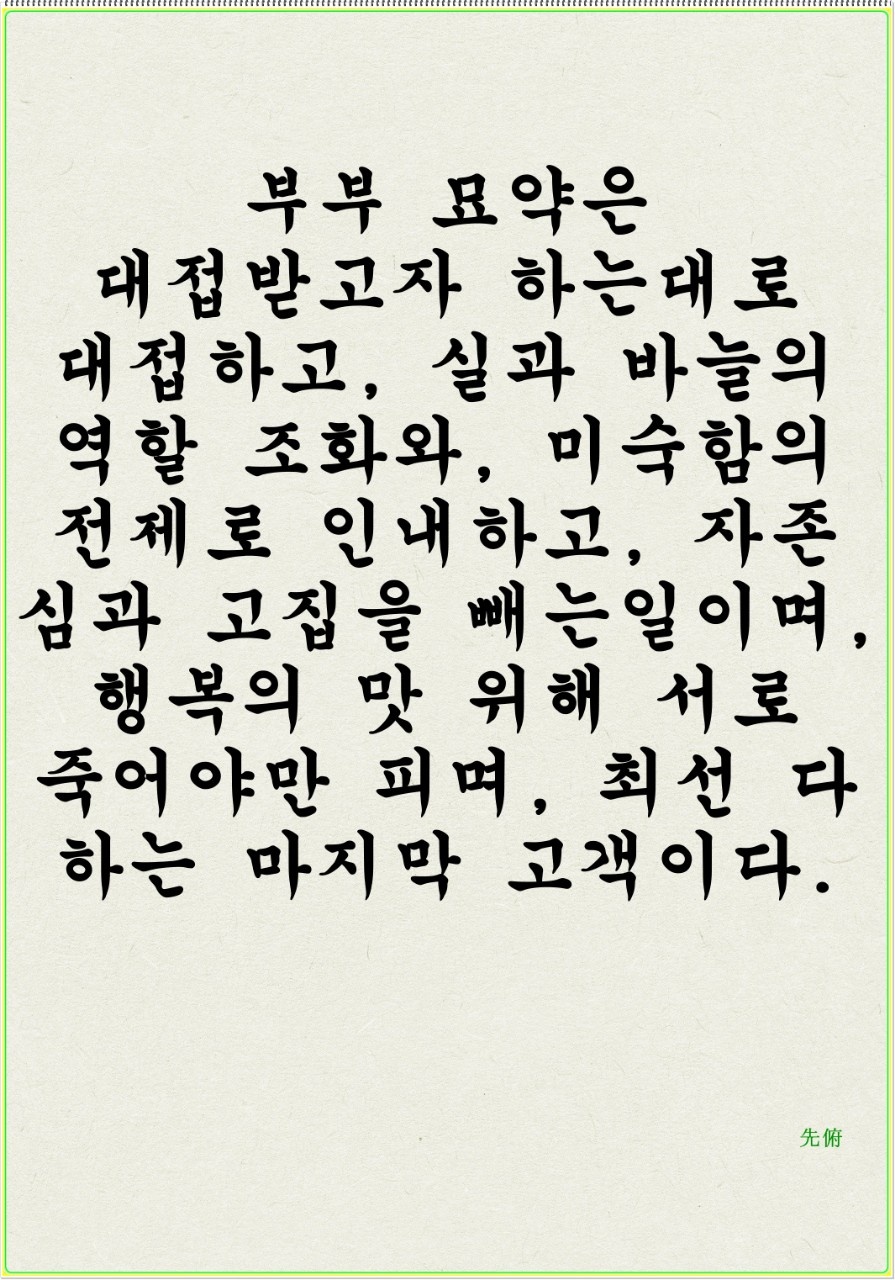 부부 묘약은
대접받고자 하는대로
대접하고, 실과 바늘의
역할 조화와, 미숙함의
전제로 인내하고, 자존
심과 고집을 빼는일이며,
행복의 맛 위해 서로
죽어야만 피며, 최선 다
하는 마지막 고객이다.
先俯